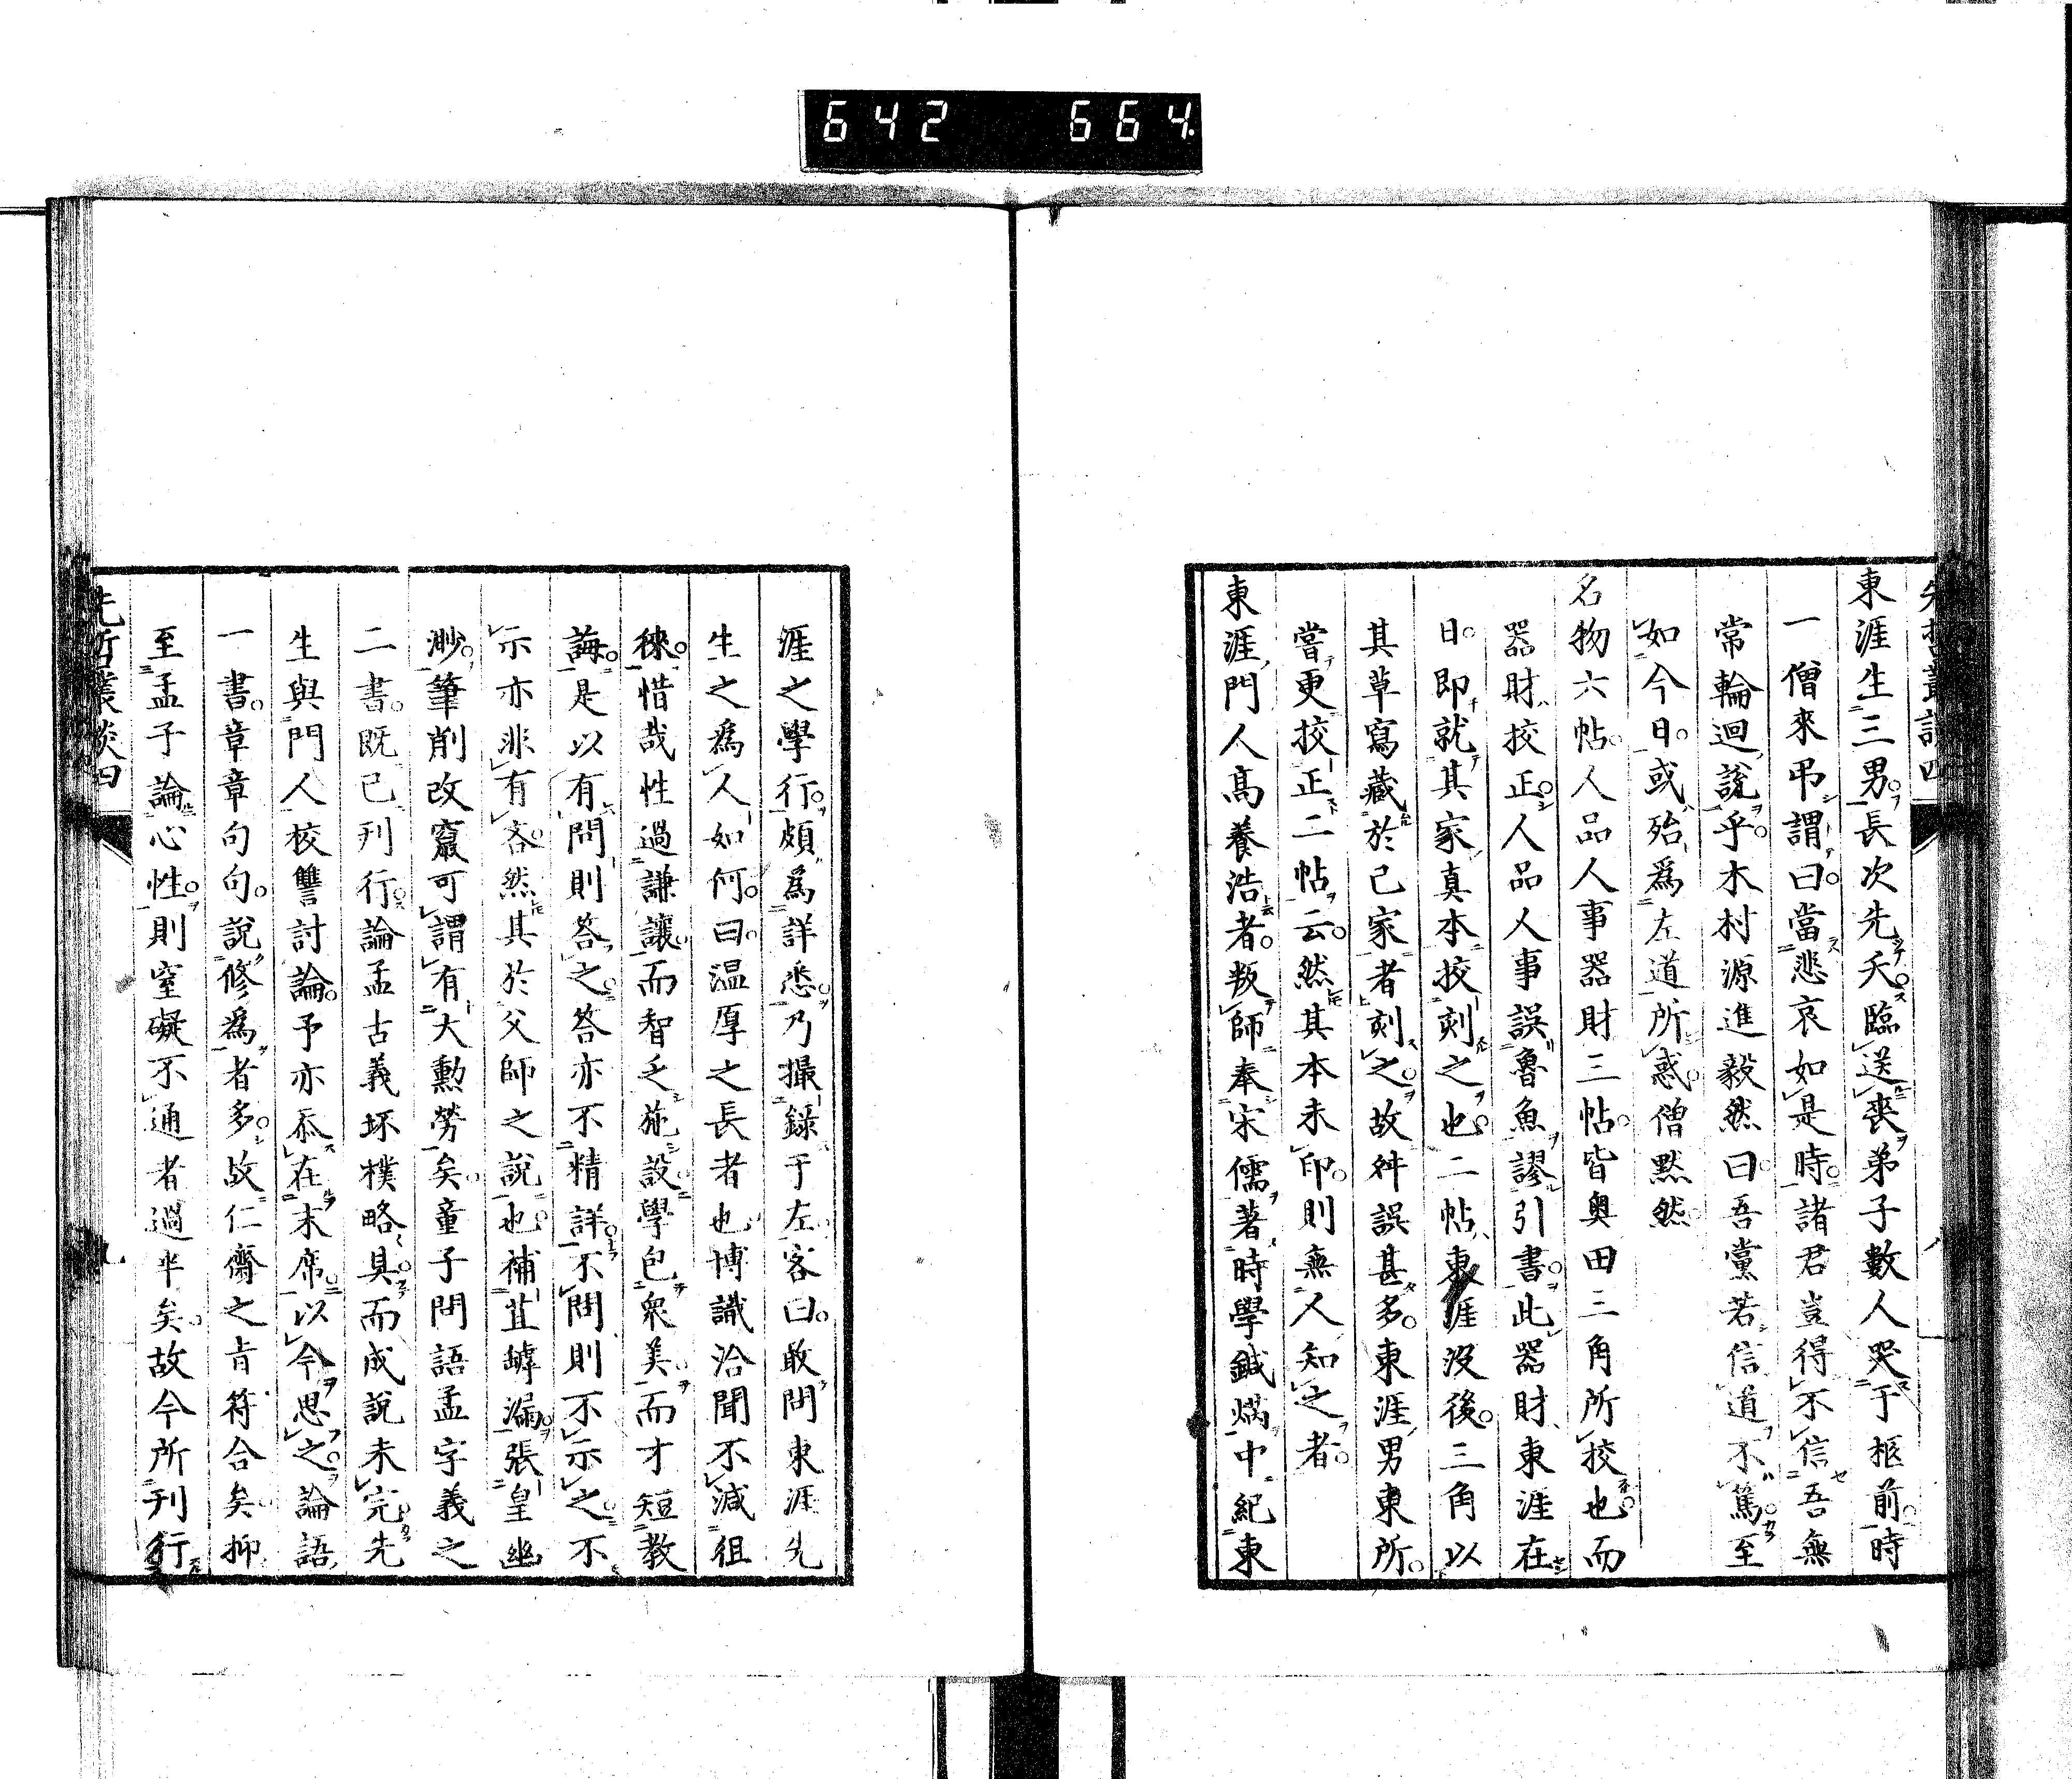 642 664
先哲叢談四
八
東涯生三男長次先夭臨送喪弟子數人哭于柩前時
一僧來弔謂曰當悲哀如是時諸君豈得不信吾無
常輪迴說乎木村源進毅然曰吾黨若信道不篤至
如今日或殆爲左道所惑僧默然
名物六帖人品人事器財三帖皆奥田三角所挍也而
器財挍正人品人事誤魯魚謬引書此器財東涯在
日即就其家真本挍刻之也二帖東涯沒後三角以
其草寫藏於己家者刻之故舛誤甚多東涯男東所
嘗更挍正二帖云然其本未印則無人知之者
東涯門人高養浩者叛師奉宋儒著時學鍼焫中紀東
涯之學行頗爲詳悉乃撮錄于左客曰敢問東涯先
生之爲人如何曰温厚之長者也博識洽聞不減徂
徠惜哉性過謙讓而智乏施設學包衆美而才短教
誨是以有問則答之答亦不精詳不問則不示之不
示亦非有吝然其於父師之說也補苴罅漏張皇幽
渺筆削改竄可謂有大勳勞矣童子問語孟字義之
二書既已刊行論孟古義坏樸略具而成說未完先
生與門人校讐討論予亦忝在末席以今思之論語
一書章章句句說修爲者多故仁齋之旨符合矣抑
至孟子論心性則窒礙不通者過半矣故今所刊行
先哲叢談四
九